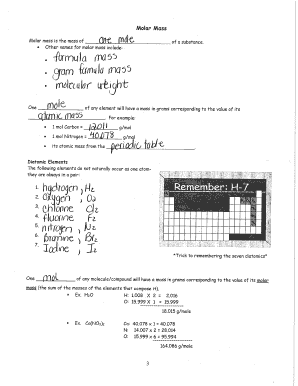 Molar Mass
Molar mass is the mass of one mole of a substance.
• Other names for molar mass include:
• formula mass
• gram formula mass
• molecular weight
One mole of any element will have a mass in grams corresponding to the value of its
atomic mass. For example:
• 1 mol Carbon = 12.011 g/mol
• 1 mol Nitrogen = 40.078 g/mol
• Its atomic mass from the periodic table
Diatomic Elements
The following elements do not naturally occur as one atom-
they are always in a pair:
1. hydrogen, H2
2. oxygen, O2
3. chlorine Cl2
4. fluorine F2
5. nitrogen, N2
6. bromine, Br2
7. Iodine, I2
Remember: H-7
*Trick to remembering the seven diatomics*
One mol of any molecule/compound will have a mass in grams corresponding to the value of its molar
mass (the sum of the masses of the elements that compose it).
• Ex. H2O H: 1.008 X 2 = 2.016
O: 15.999 X 1 = 15.999
18.015 g/mol
• Ex. Ca(NO3)2 Ca: 40.078 x 1 = 40.078
N: 14.007 x 2 = 28.014
O: 15.999 x 6 = 95.994
164.086 g/mol
3